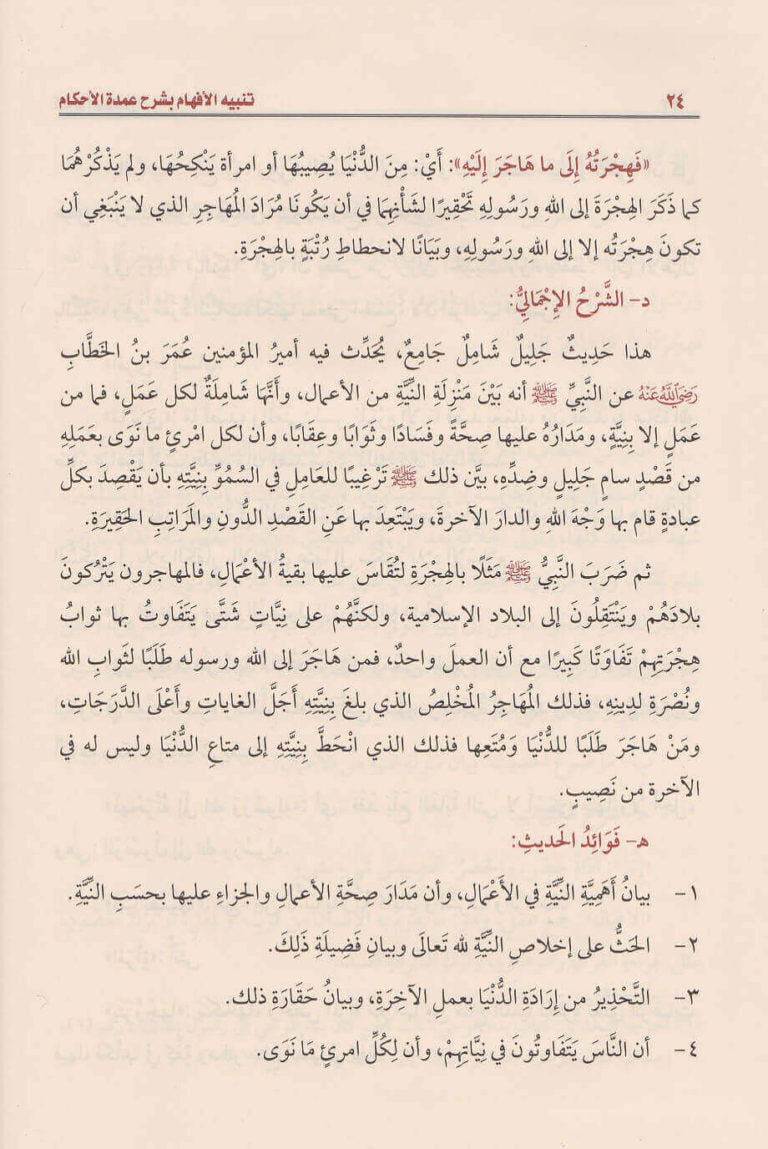 ٢٤ تنبيه الأفهام بشرح عمدة الأحكام
«فَهِجْرَتُهُ إِلَى ما هَاجَرَ إِلَيْهِ»: أَيْ: مِنَ الدُّنْيَا يُصِيبُهَا أو امرأة يَنْكِحُهَا، ولم يَذْكُرْهُمَا
كما ذَكَرَ الهِجْرَةَ إلى اللهِ ورَسُولِهِ تَحْقِيرًا لشَأْنِهِمَا في أن يَكُونَا مُرَادَ المُهَاجِرِ الذي لا يَنْبَغِي أن
تكونَ هِجْرَتُه إلا إلى اللهِ ورَسُولِهِ، وبَيَانًا لانحطاطِ رُتْبَةٍ بالهِجْرَةِ.
د- الشَّرْحُ الإِجْمَالِيُّ:
هذا حَدِيثٌ جَلِيلٌ شَامِلٌ جَامِعٌ، يُحَدِّث فيه أميرُ المؤمنين عُمَرَ بنُ الخَطَّابِ
رَضِيَ اللَّهُ عَنْهُ عن النَّبِيِّ ﷺ أنه بَيْنَ مَنْزِلَةِ النِّيَّةِ من الأعمال، وأَنَّهَا شَامِلَةٌ لكل عَمَلٍ، فما من
عَمَلٍ إلا بِنِيَّةٍ، ومَدَارُهُ عليها صِحَّةً وفَسَادًا وثَوَابًا وعِقَابًا، وأن لكل امْرئٍ ما نَوَى بعَمَلِهِ
من قَصْدٍ سامٍ جَلِيلٍ وضِدِّهِ، بيَّن ذلك ﷺ تَرْغِيبًا للعَامِلِ في السُمُوِّ بِنِيَّتِهِ بأن يَقْصِدَ بكلِّ
عبادةٍ قام بها وَجْهَ اللهِ والدار الآخرةَ، ويَبْتَعِدَ بها عَنِ القَصْدِ الدُّونِ والمَرَاتِبِ الحَقِيرَةِ.
ثم ضَرَبَ النَّبِيُّ ﷺ مَثَلًا بالهِجْرَةِ لتُقَاسَ عليها بقيةُ الأَعْمَالِ، فالمهاجرون يَتْرُكونَ
بلادَهُمْ ويَنْتَقِلُونَ إلى البلاد الإسلامية، ولكنَّهُمْ على نِيَّاتٍ شَتَّى يَتَفَاوتُ بها ثوابُ
هِجْرَتِهِمْ تَفَاوَتًا كَبِيرًا مع أن العملَ واحدٌ، فمن هَاجَرَ إلى الله ورسوله طَلَبًا لثَوابِ الله
ونُصْرَةِ لدِينِهِ، فذلك المُهَاجِرُ المُخْلِصُ الذي بلغَ بِنِيَّتِه أَجَلَّ الغاياتِ وأَعْلَى الدَّرَجَاتِ،
ومَنْ هَاجَرَ طَلَبًا للدُّنْيَا ومُتَعِها فذلك الذي انْحَطَّ بِنِيَّتِهِ إلى متاعِ الدُّنْيَا وليس له في
الآخرة من نَصِيبٍ.
هـ- فَوَائِدُ الحَديثِ:
١- بيانُ أَهَمِيَّةِ النِّيَّةِ في الأَعْمَالِ، وأن مَدَارَ صِحَّةِ الأعمالِ والجزاءِ عليها بحسَبِ النِّيَّةِ.
٢- الحَثُّ على إخلاصِ النِّيَّةِ لله تَعالَى وبيانِ فَضِيلَةِ ذَلِكَ.
٣- التَّحْذِيرُ من إرَادَةِ الدُّنْيَا بعملِ الآخِرَةِ، وبيانُ حَقَارَةِ ذلك.
٤- أن النَّاسَ يَتَفَاوتُونَ في نِيَّاتِهِمْ، وأن لِكُلِّ امرئٍ مَا نَوَى.